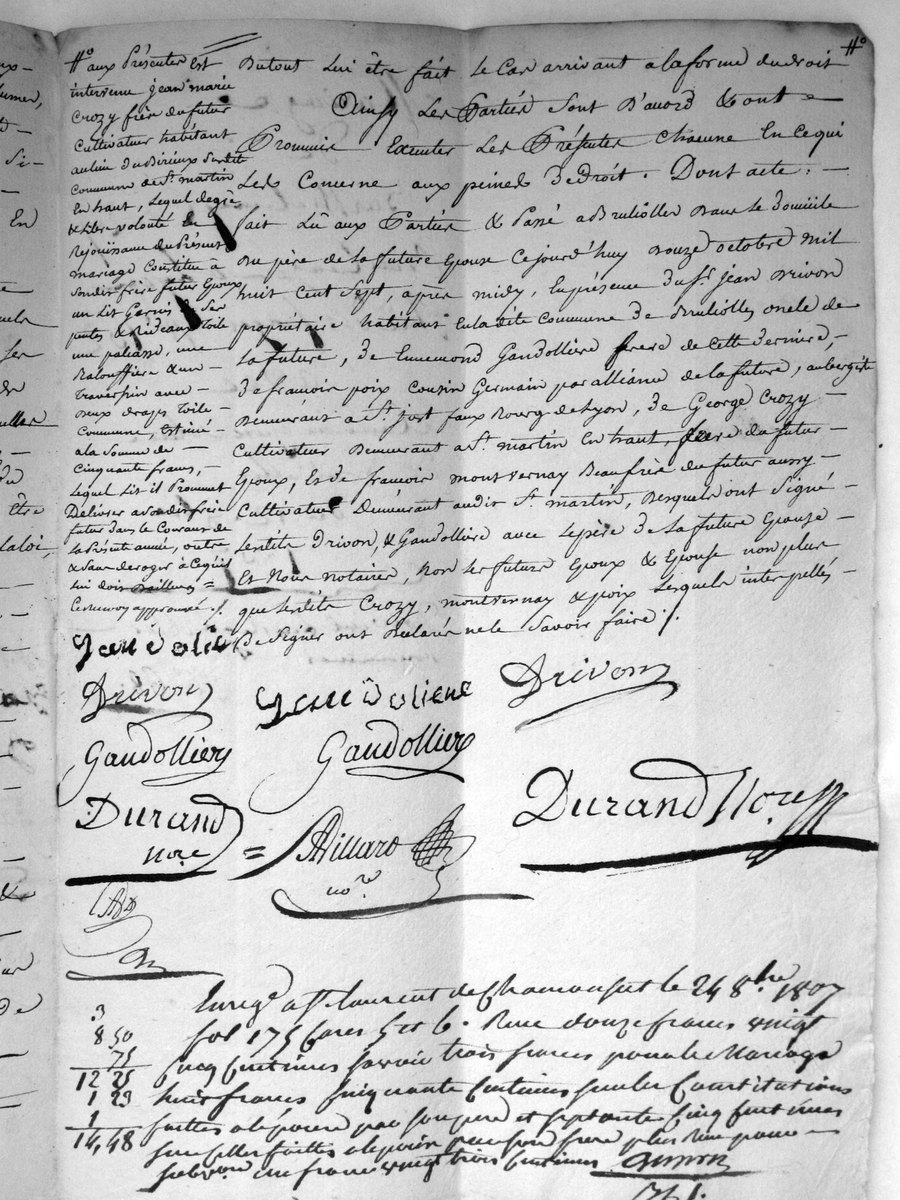 #o
Du tout lui être fait le Cas arrivant a la forme du droit
Ainsy Les Parties sont D'acord & ont =
Promis Executer Les Présentes Chacune En ce qui
Les Concerne aux peines De droit. Dont acte: =
fait Lû aux Parties & Passé a Brullolles Dans le Domicile
Du père de la future Epouse Cejourd'huy Douze octobre mil
huit cent Sept, après midy, En présence du Sr. Jean Drivon
propriétaire habitant En la dite Commune de Brullolles oncle de
La future, De Ennemond Gaudollière frere de cette Dernière,-
De francois poix Cousin Germain par alliance de la future, aubergiste
Demeurant a St. Just faux Bourg de Lyon, De George Crozy -
Cultivateur Demeurant a St. martin En haut, frere du futur -
Epoux, Et De francois montvernay Beaufrère du futur aussy -
Cultivateur Demeurant audit St. martin, Desquels ont Signé -
Lesdits Drivon, & Gaudollière avec Le père De La future Epouse -
Et Nous notaire, Non les future Epoux & Epouse non plus
que Lesdits Crozy, montvernay & poix Lesquels interpellés -
De Signer ont Déclarés ne le Savoir faire ./.
#o aux Présentes Est
intervenu Jean marie
Crozy frère du futur
Cultivateur habitant
au lieu Du Bireux Surdite
Commune de St. martin
En haut, Lequel de gré
& Libre volonté En
Rejouissance du Présent
mariage Constitue à
Sondit frère futur Epoux
un Lit Garnis De Ser
pentes & Rideaux toile
une paliasse, une
Balouffière & un
traversin avec
Deux draps toile -
Commune, Estimé
a la Somme de -
Cinquante francs, -
Lequel Lit il Promet
Délivrer a Sondit frère
futur Dans le Courant de
la Présente année, outre
& Sans deroger à Ce qu'il
lui doit D'ailleurs =
Ce Renvoy approuvé ./.
Drivon
Drivon
Gaudollière
Gaudollière
Durand
nore
=
Villard
nore
Durand Nore
Enregé a St. Laurent de Chamousset le 24 8bre 1807
fol 175 Cases 5 et 6. Reçu douze francs vingt
cinq Centimes savoir trois francs pour le Mariage
huit francs cinquante Centimes sur les Constitutions
faittes a l'epoux par son pere et septante cinq Centimes
sur celles faittes a l'epoux par son frere plus Reçu pour
subvon un franc vingt trois Centimes
3
8 50
75
12 25
1 23
1
14,48